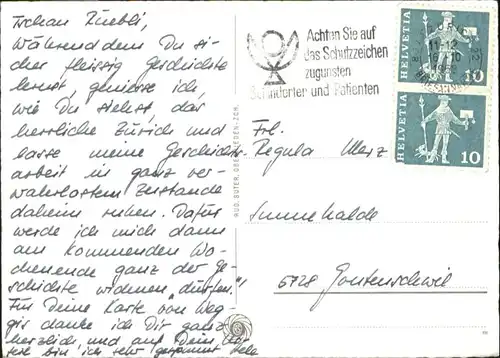 Tschau Züebli,
Während dem Du si-
cher fleissig Geschichte
lernst, geniesse ich,
wie Du siehst, das
herrliche Zürich und
lasse meine Geschichts-
arbeit in ganz ver-
wahrlostem Zustande
daheim ruhen. Dafür
werde ich mich dann
am kommenden Wo-
chenende ganz der Ge-
schichte widmen "dürfen"!
Für Deine Karte von Weg-
gis danke ich Dir ganz
herzlich, und auf Dein
bin ich sehr gespannt
RUD. SUTER, OBERRIEDEN-ZCH.
Achten Sie auf
das Schutzzeichen
zugunsten
Behinderter und Patienten
HELVETIA 10
HELVETIA 10
Frl.
Regula Merz
Summehalde
5728 Gontenschwil